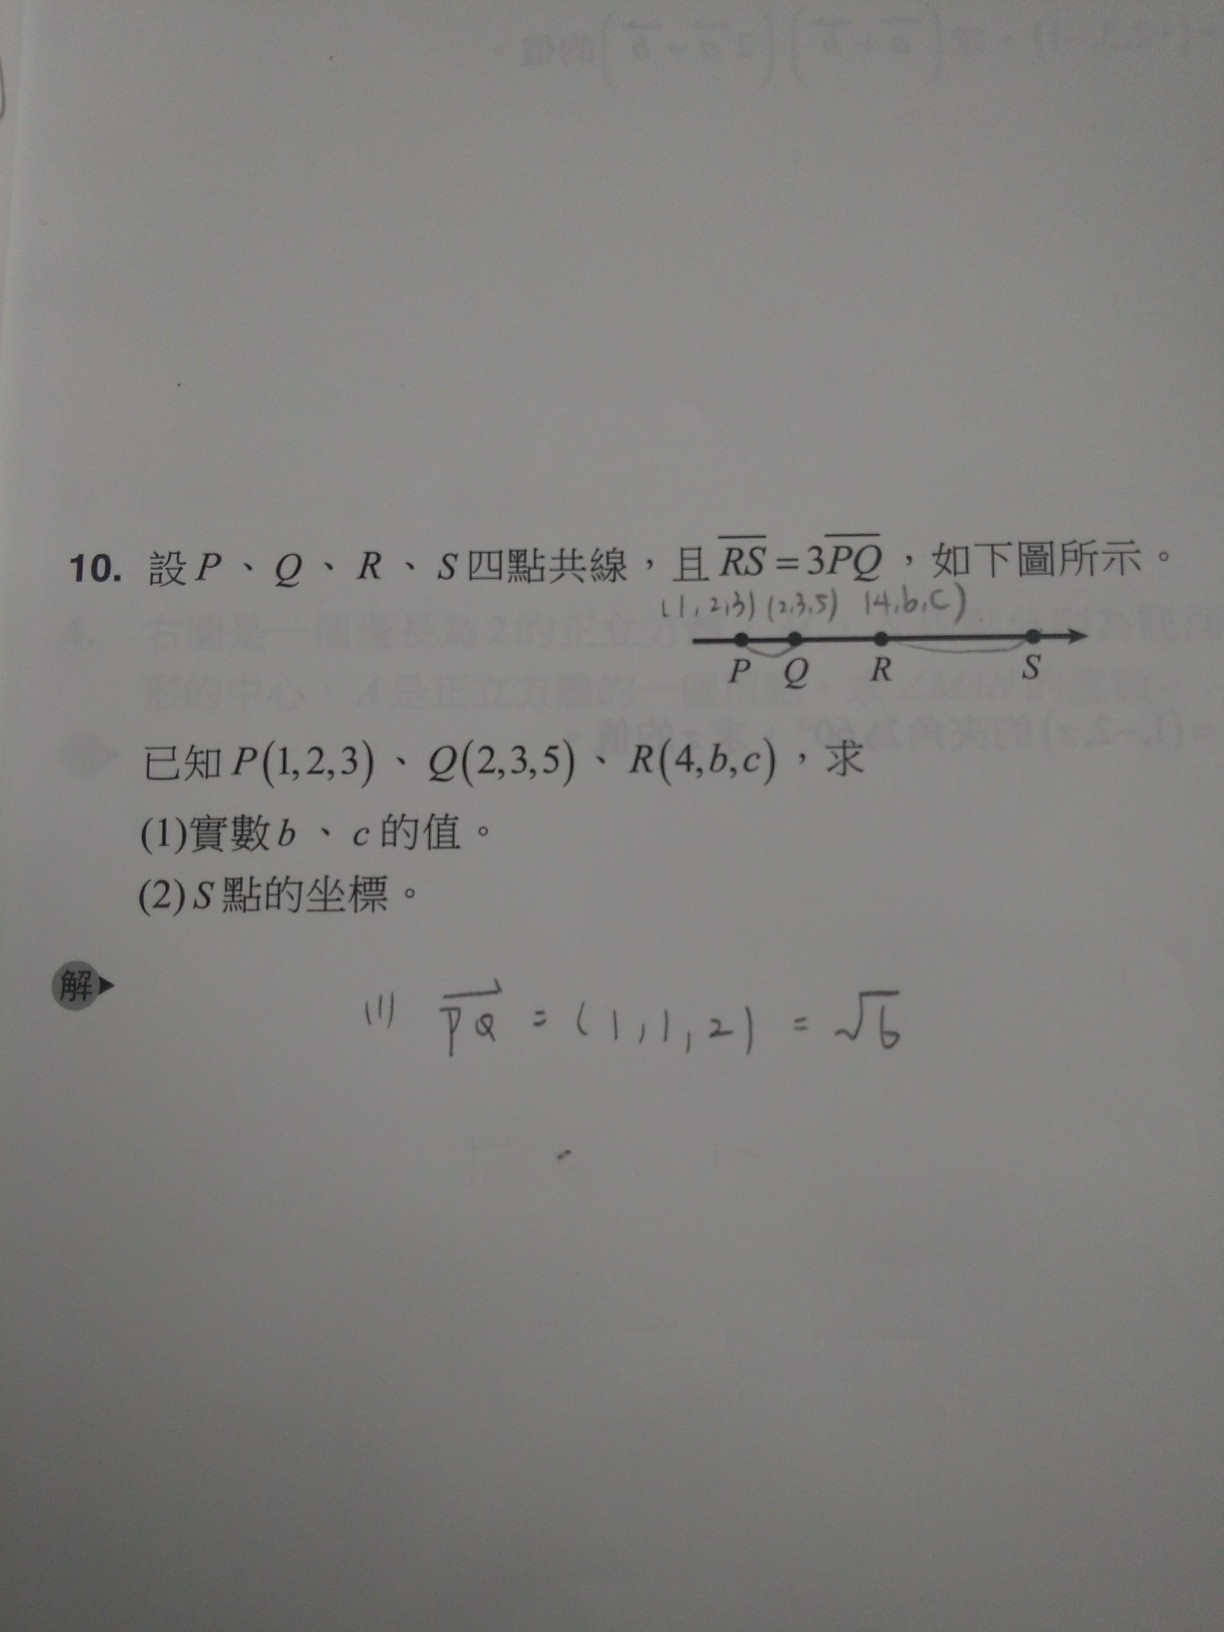 10. 設 P、Q、R、S 四點共線，且 \overline{RS} = 3\overline{PQ}，如下圖所示。
(1,2,3) (2,3,5) (4,b,c)
P Q R S
已知 P(1,2,3)、Q(2,3,5)、R(4,b,c)，求
(1)實數 b、c 的值。
(2) S 點的坐標。
解
(1) \overrightarrow{PQ} = (1,1,2) = √6